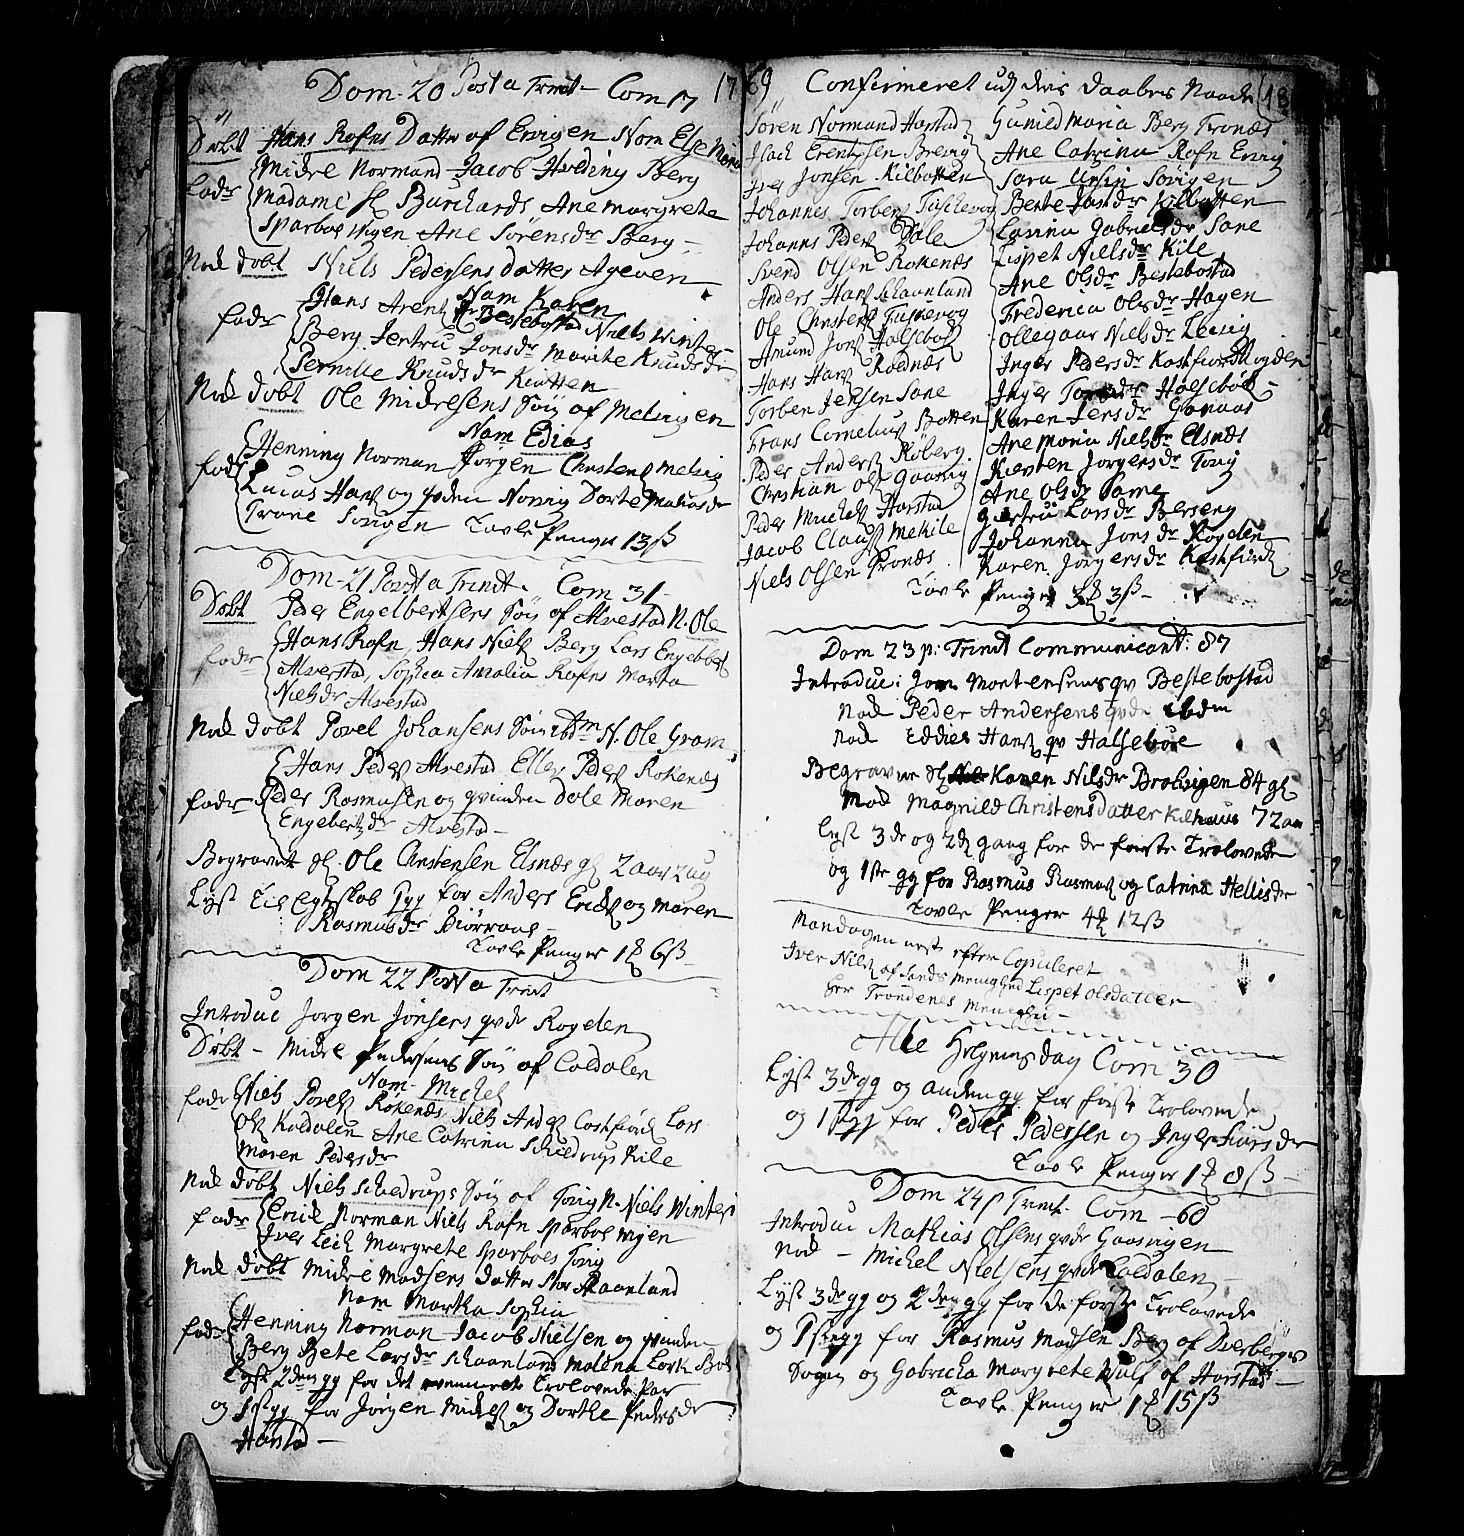 Dom. 20 Post a Trinit - Com 17
Døbt Hans Rofns Datter af Ervigen Nom Else Maria
fadr Midre Normand Jacob Hveding Berg
Madame Sl Burchards Ane margrete
Sparboe Ane Sørensdr Berg -
Nok døbt Niels Pedersens datter Ageven
Nam Karen
fadr Hans Arent Bessebostad Niels Winter
Berg Jertru Jonsdr Marite Knudsdr
Pernille Knudsdr Kiøtten
Nok døbt Ole Midresens Søn af Melvigen
Nam Edias
fadr Henning Norman Jørgen Christens Melvig
Lucas Hans og qvden Norvig Dorte Matiasdr
Trane Sørvigen Tavle Penger 13 ß
Dom. 21 Post a Trinit. Com 31 -
Døbt Peder Engelbertsens Søn af Alvestad N. Ole
fadr Hans Rofn Hans Niels Berg Lars Engebbert
Alvestad, Sophia Amalia Rofns Marta
Nielsdr Alvestad
Nok døbt Povel Johansens Søn ibdm N. Ole Gram
Hans Peders Alvestad Elles Peders Rokenes
fadr Peder Rasmusen og qvinden Dale Maren
Engebertsdr Alvestad -
Begravet Sl. Ole Christensen Elsnes gl 2 aar 2 ug
Lyst til Egteskab 3gg for Anders Erichs og Maren
Rasmusdr Biørraae -
Tavle Penger 1 6 ß
Dom 22 Post a Trinit
Introduc Jorgen Jonsens qvde Røyelen
Døbt - Midre Pedersens Søn af Coldalen
Nam - Michel
fadr Niels Povels Røkenes Niels Anders Costfiord Lars
Ols Koldalen Ane Catrina Schieldrup Kile
Maren Pedersdr
Nok døbt Niels Schedrups Søn af Torig N. Niels Winter
fadr Erich Norman Niels Rofn Sparboe
Iver Leich Margrete Sparboes Torig
Nok døbt Midre Madsens datter Stor Skaanland
Nam Martha Sophia
fadr Henning Norman Jacob Nielsen og qvinden
Berg Bete Larsdr Schaanland Malena Lork
Lyst 2den gg for det Trolovede Par
og 1ste gg for Jørgen Midres og Dorthe Pedersdr
Harstad -
1769 Confirmeret udj deris Daabes Naade 18
Søren Normand Harstad
Isach Erentsen Brevig
Iver Jonsen Kilbotten
Johannes Torbers Tuschevog
Johanns Peders Dale
Svend Olsen Rokenes
Anders Hans Skaanland
Ole Christens Tuskevog
Amund Jons Halsebøe
Hans Hans Roldnes
Torben Jensen Sane
Frans Cornelius Botten
Peder Anders Røberg
Christian Ols Gaasvig
Peder Michels Harstad
Jacob Claus Mekile
Niels Olsen Trones
Gunild Maria Berg Trones
Ane Catrina Rofn Ervig
Sara Ursin Sørvigen
Berte Jonsdr Kilbotten
Lasina Gabrielsdr Sane
Lispet Nielsdr Kile
Ane Olsdr Bestebostad
Frederica Olsdr Hagen
Ollegaar Nielsdr Leevig
Inger Pedersdr Kastfiord Røyden
Inger Halsebøe -
Karen Jensdr Gonnas
Ane Maria Nielsdr Elsnes
Kiersten Jorgensdr Torig
Ane Olsdr Same
Giertru Larsdr Berserg
Johanna Jonsdr Røydelen
Karen Jørgensdr Kastfiord
Tavle Penger 3 3 ß -
Dom 23 p: Trinit Communicant: 87
Introduc: Jon Mortensens qv Bestebostad
Nok Peder Andersens qvde ibdm
Nok Eddies Hans qv Halsebøe
Begraven Sl Karen Nilsdr Brokvigen 84 gl
Nok Magnild Christens datter Kilhaus 72 aar
Lyst 3de og 2d gang for de første Trolovede
og 1ste gg for Rasmus Rasmus og Catrina Hellisdr
Tavle Penger 4 12 ß
Mandagen nest efter Copuleret
Iver Nils af Sands Menighed Lispet Olsdatter
her Trondenes Menighei -
Alle Helgensdag Com 30
Lyst 3de gg og anden gg for første Trolovede
og 1ste gg for Peder Pedersen og Inger Siursdr
Tavle Penger 1 8 ß -
Dom 24 p Trinit. Com - 60
Introduc Mathias Olsens qvde Gaasvigen
Nok - Michel Nielsens qvde Coldalen -
Lyst 3de gg og 2den gg for de første Trolovede
og 1ste gg for Rasmus Madsen Berg af Dverbergs
Sogn og Gabricka Margrete Wulf af Harstad -
Tavle Penger 1 15 ß